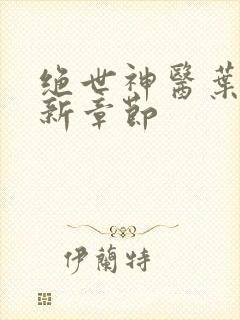 绝世神醫葉
新章節
伊蘭特